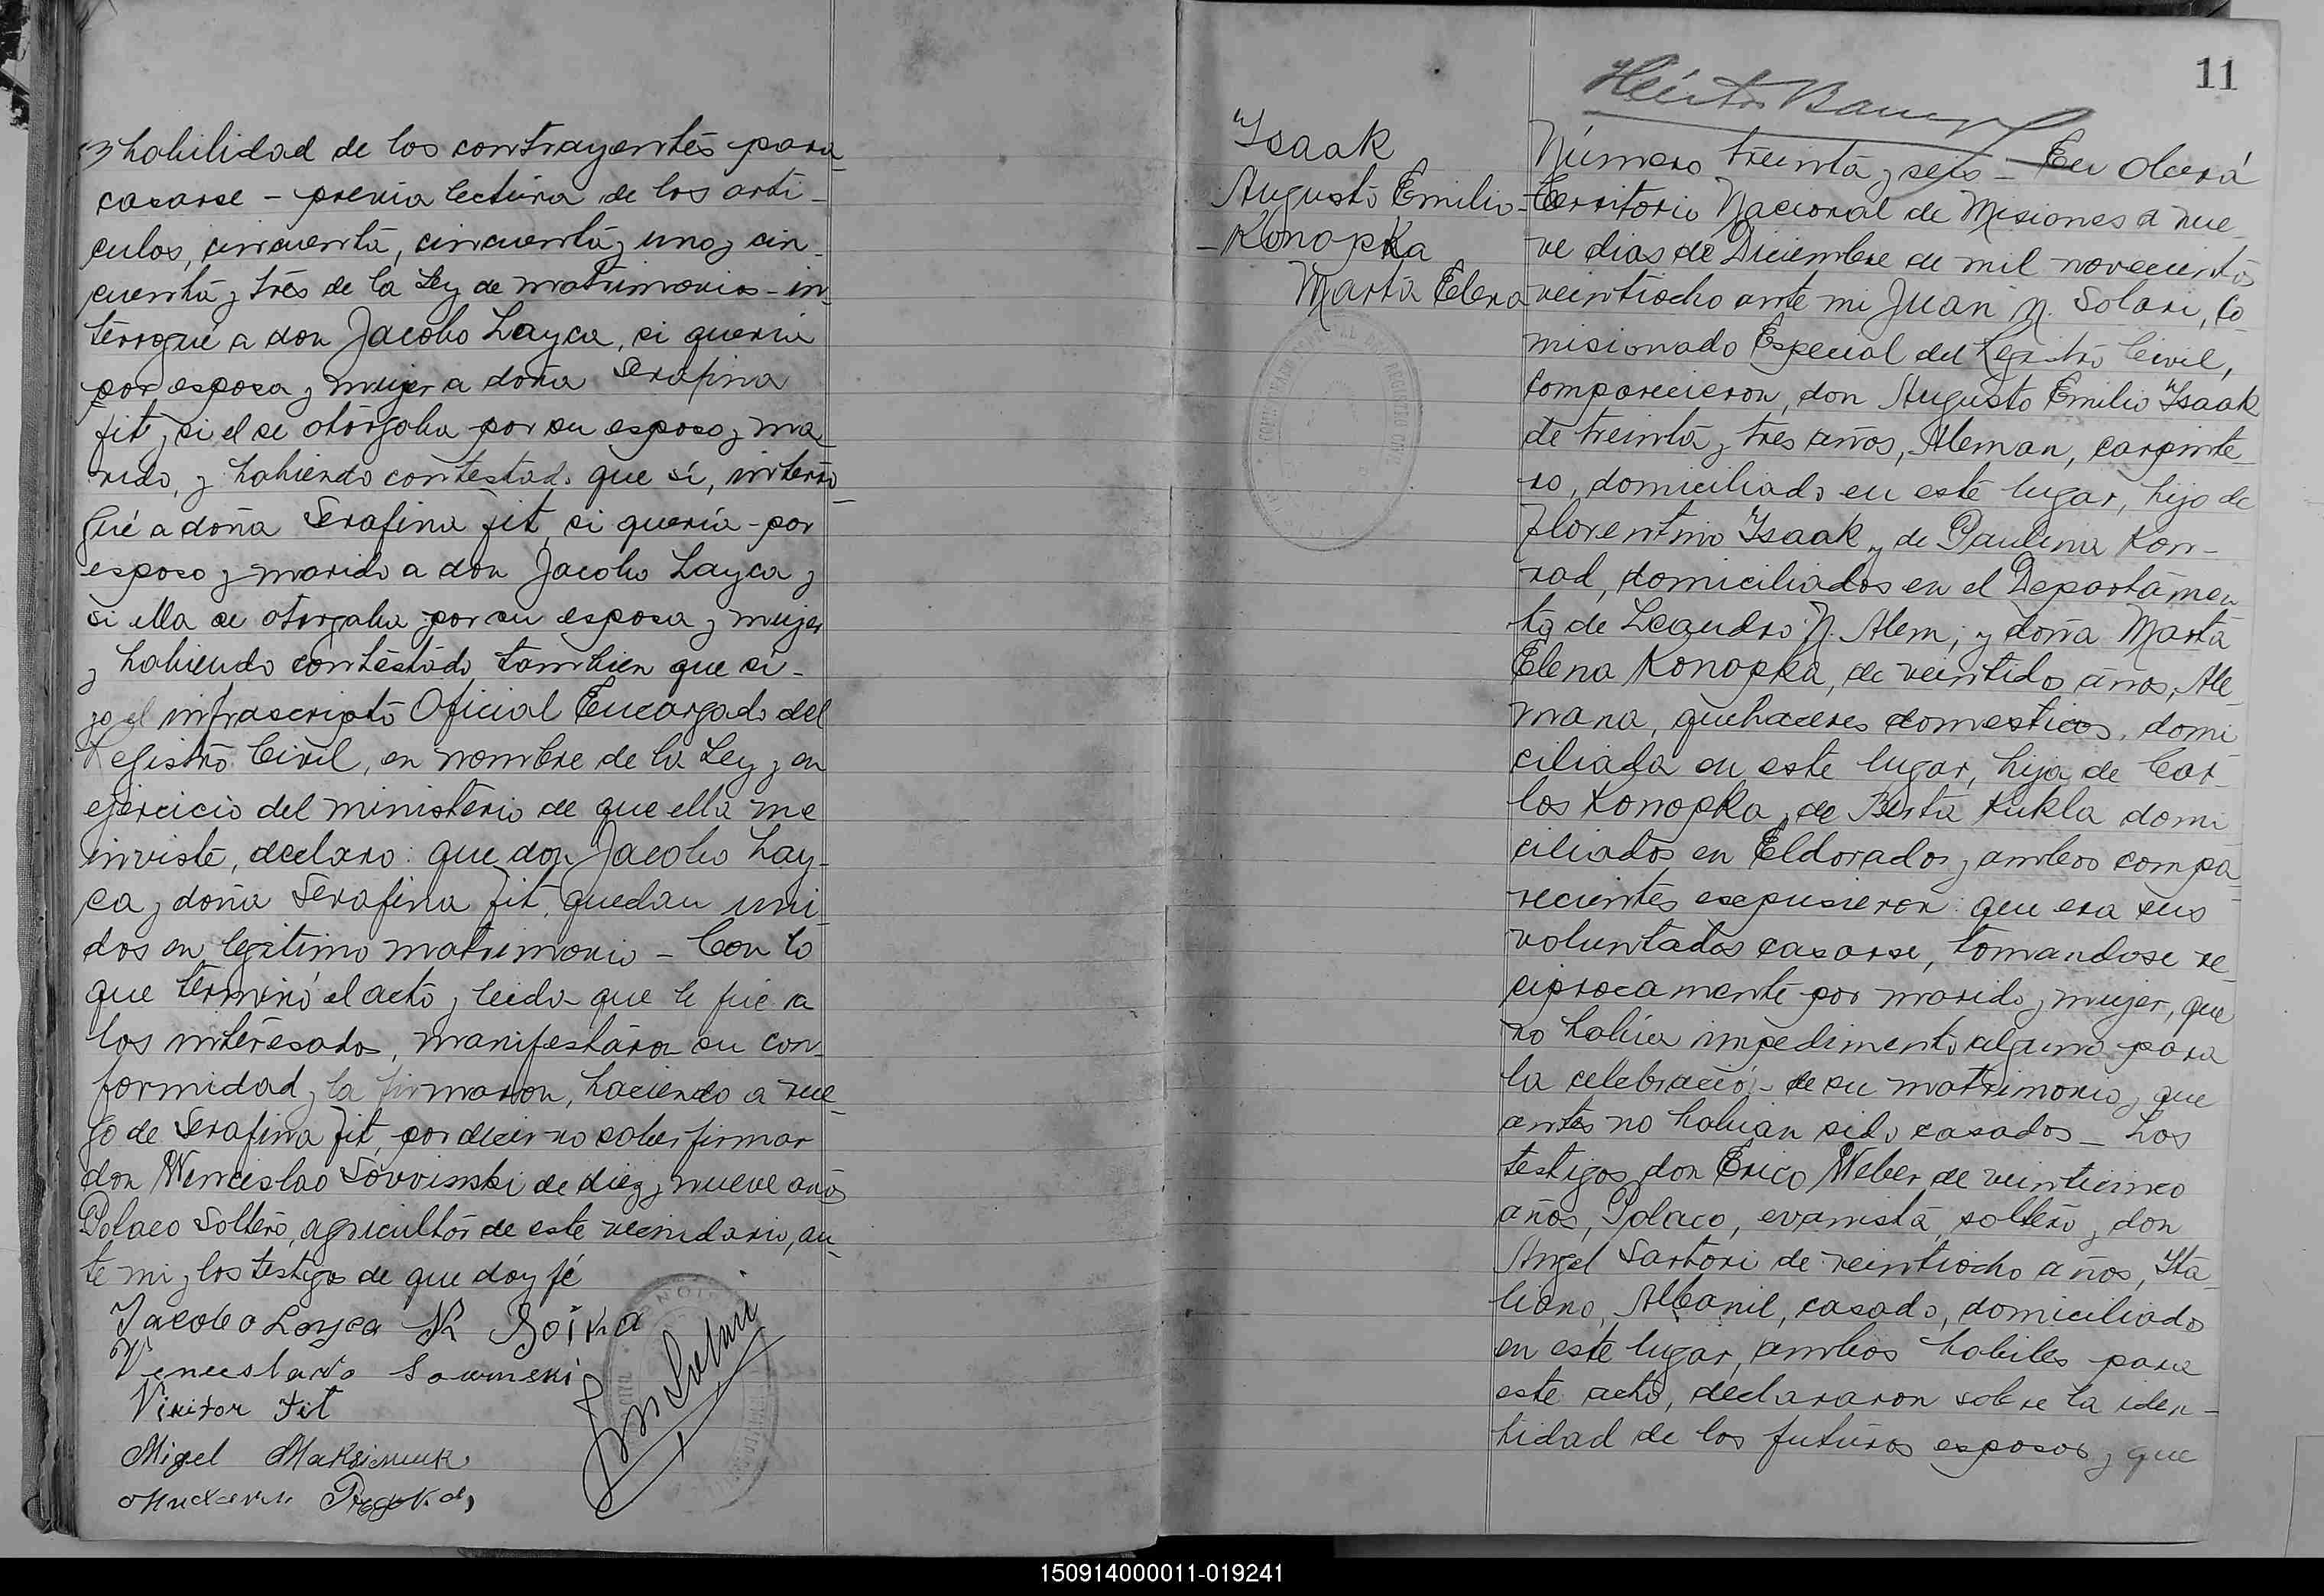 habilidad de los contrayentes para
casarse - previa lectura de los arti-
culos, cincuenta, cincuenta y uno y cin-
cuenta y tres de la Ley de matrimonios - in-
terrogué a don Jacobo Layca, si queria
por esposa y mujer a doña Serafina
Fit y si el se otorgaba por su esposo y ma-
rido, y habiendo contestado que si, interro-
gué a doña Serafina Fit, si quería por
esposo y marido a don Jacobo Layca y
si ella se otorgaba por su esposa y mujer
y habiendo contestado tambien que si -
yo el infrascripto Oficial Encargado del
Registro Civil, en nombre de la Ley y en
ejercicio del ministerio de que ella me
inviste, declaro: que don Jacobo Lay-
ca y doña Serafina Fit, quedan uni-
dos en legitimo matrimonio - Con lo
que terminó el acto y leida que le fue a
los interesados, manifestaron su con-
formidad y la firmaron, haciendo a rue-
go de Serafina Fit, por decir no saber firmar
don Wenceslao Sovvinski de diez y nueve años
Polaco Soltero, agricultor de este vecindario, an-
te mi y los testigos de que doy fé
Jacobo Layca
Boika
Venceslavo Sowinski
Victor Fit
Migel Maksimiuk
11
Isaak
Augusto Emilio
- Konopka
Marta Elena
Número treinta y seis - En Oberá
Territorio Nacional de Misiones a nue-
ve dias de Diciembre de mil novecientos
veintiocho ante mi Juan M. Solari, Co-
misionado Especial del Registro Civil,
comparecieron, don Augusto Emilio Isaak
de treinta y tres años, Aleman, carpinte-
ro, domiciliado en este lugar, hijo de
Florentino Isaak y de Paulina Kon-
rad, domiciliados en el Departamen-
to de Leandro N. Alem; y doña Marta
Elena Konopka, de veintidos años, Ale-
mana, quehaceres domesticos, domi
ciliada en este lugar, hija de Car-
los Konopka y de Berta Kukla domi
ciliados en Eldorado y ambos compa-
recientes expusieron: que era sus
voluntades casarse, tomandose re-
ciprocamente por marido y mujer, que
no había impedimento alguno para
la celebración de su matrimonio y que
antes no habian sido casados - Los
testigos don Erico Weber de veinticinco
años, Polaco, evanista, soltero y don
Angel Sartori de veintiocho años, Ita-
liano, Albanil, casado, domiciliados
en este lugar, ambos habiles para
este acto, declararon sobre la iden-
tidad de los futuros esposos y que
150914000011-019241